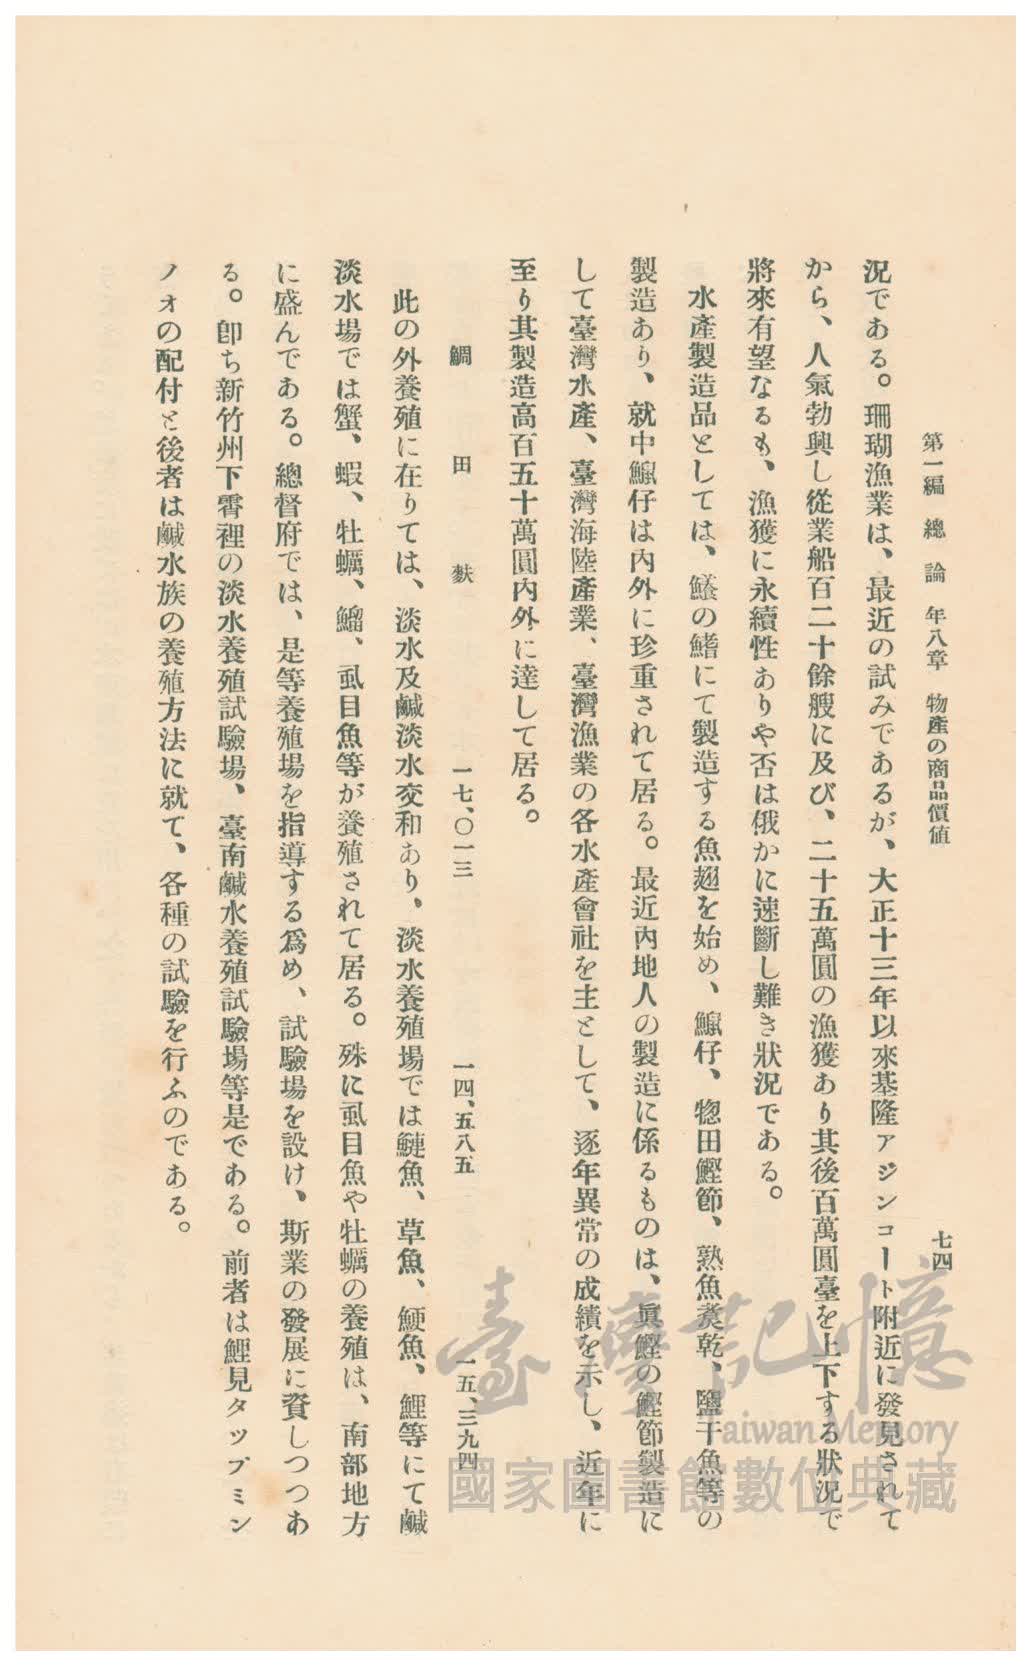 第一編 總論 年八章 物產の商品價值 七四
況である。珊瑚漁業は、最近の試みであるが、大正十三年以來基隆アジンコート附近に發見されて
から、人氣勃興し從業船百二十餘艘に及び、二十五萬圓の漁獲あり其後百萬圓臺を上下する狀況で
將來有望なるも、漁獲に永續性ありや否は俄かに速斷し難き狀況である。
水產製造品としては、鱶の鰭にて製造する魚翅を始め、鰮仔、惣田鰹節、熟魚煑乾、鹽干魚等の
製造あり、就中鰮仔は內外に珍重されて居る。最近內地人の製造に係るものは、眞鰹の鰹節製造に
して臺灣水產、臺灣海陸產業、臺灣漁業の各水產會社を主として、逐年異常の成績を示し、近年に
至り其製造高百五十萬圓內外に達して居る。
鯛田麩 一七、〇一三 一四、五八五 一五、三九四
此の外養殖に在りては、淡水及鹹淡水交和あり、淡水養殖場では鰱魚、草魚、鯁魚、鯉等にて鹹
淡水場では蟹、蝦、牡蠣、鰡、虱目魚等が養殖されて居る。殊に虱目魚や牡蠣の養殖は、南部地方
に盛んである。總督府では、是等養殖場を指導する爲め、試驗場を設け、斯業の發展に資しつつあ
る。卽ち新竹州下霄裡の淡水養殖試驗場、臺南鹹水養殖試驗場等是である。前者は鯉見タップミン
ノォの配付と後者は鹹水族の養殖方法に就て、各種の試驗を行ふのである。
臺灣記憶
Taiwan Memory
國家圖書館數位典藏